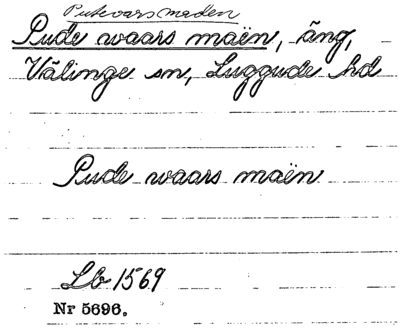 Putevarsmaden
Pude waars maën, äng,
Välinge sn, Luggude hd
Pude waars maën
Lb 1569
Nr 5696.